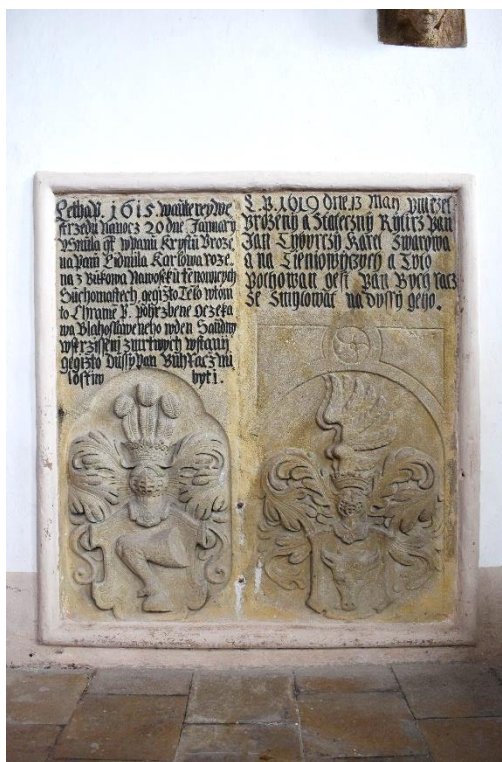 Letha P. 1615. w autereỳ we
strzedu na nocz 20 dne January
vsnula gt w panu Krystu Uroze,
na Pani Lidmila Karlowa roze,
na z Bukowa
Suchomastech, gegizto Tělo w tom
to Chramě P. pohrzbene oczeka
wa Blahoslaweneho w den Saudny
wzkrzisseny z mrtwych wstany
gegizto Dussy Pan Buh racz mi
lostiw byti.
L. P. 1619 dne 13 May
Vrozeny a Stateczny Rytirz Pan
Jan Karel Swarowa
a na a Tuto
Pochowan gest Pan Bych racz
Se Smylowat na dussy geho.